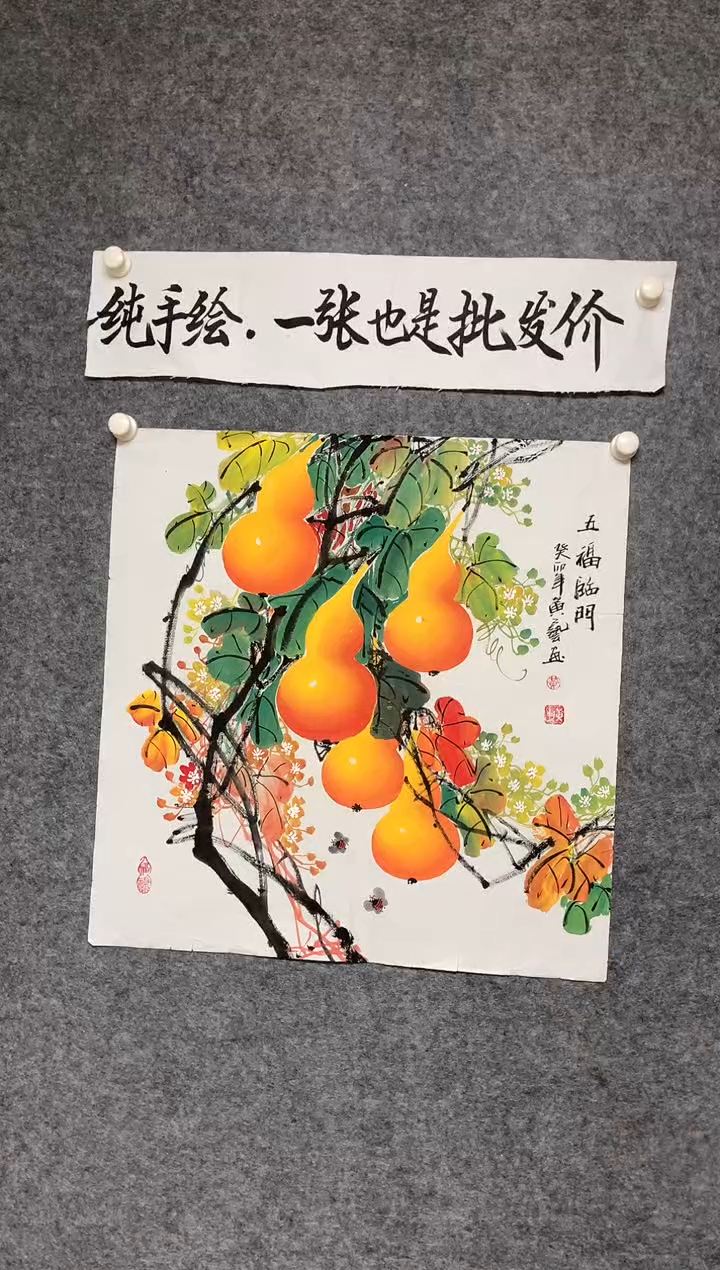 纯手绘.一张也是批发价
五福临門
癸卯年黄艺画